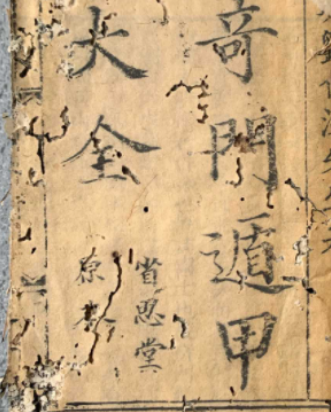 奇門遁甲
大全
省恩堂
原本